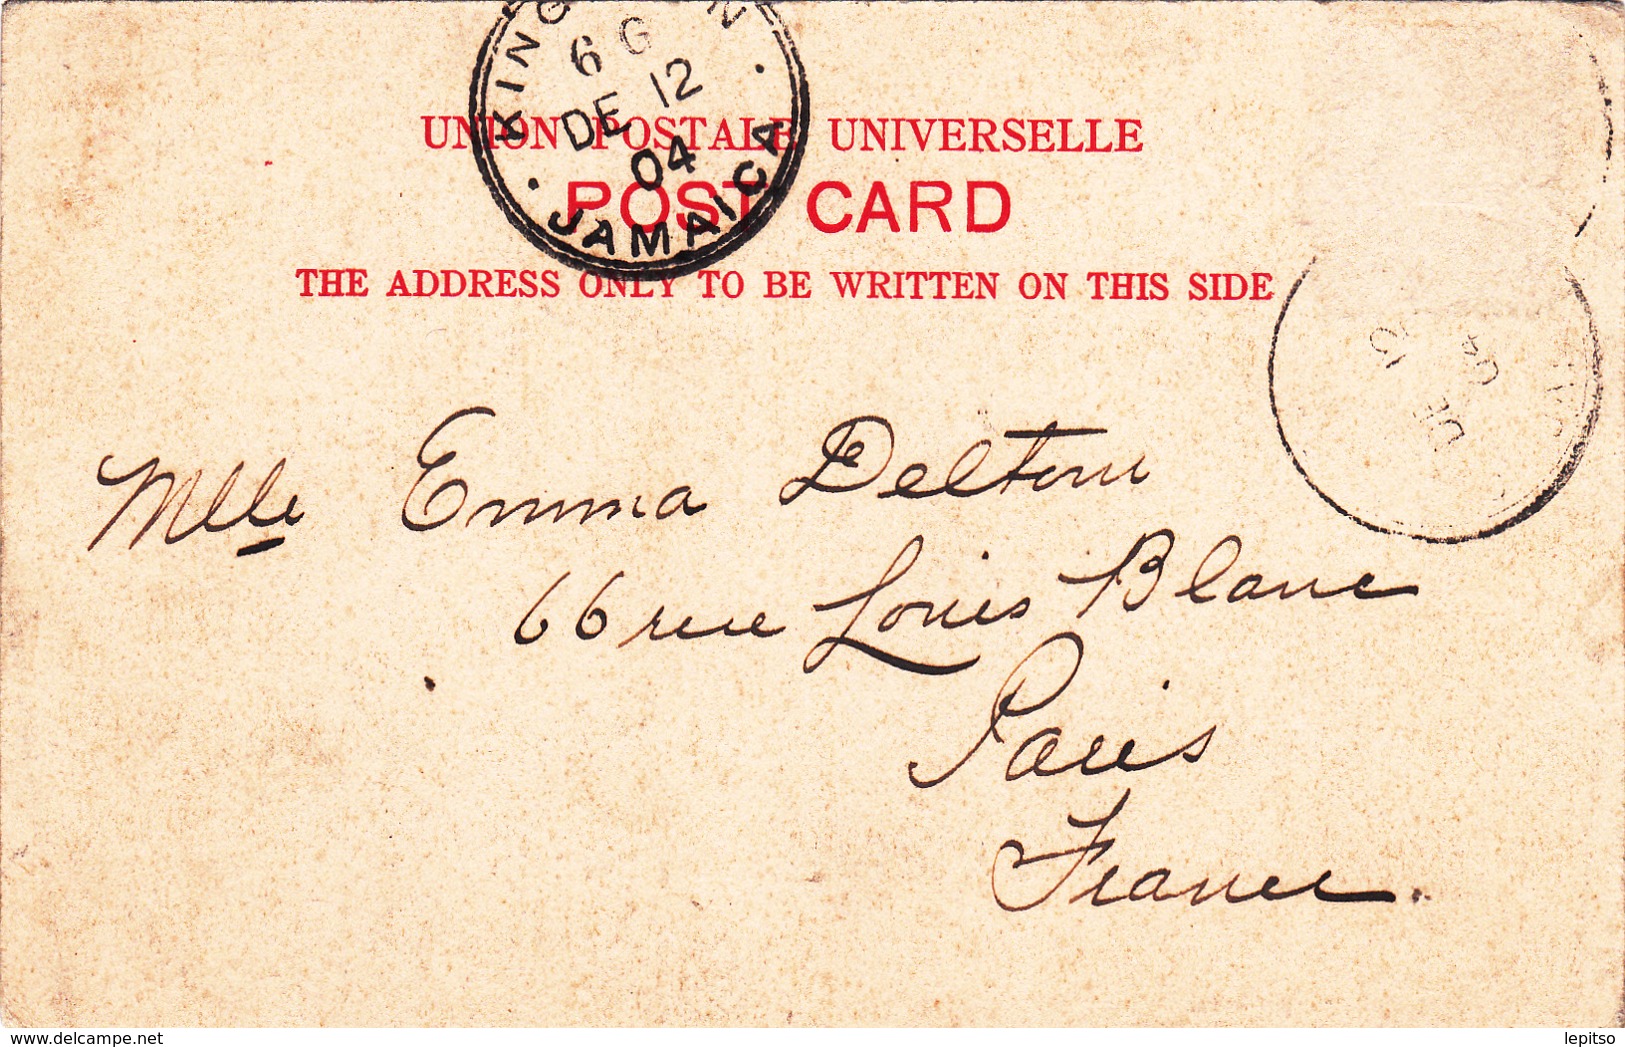 KINGSTON
6 G
DE 12
04
JAMAICA
UNION POSTALE UNIVERSELLE
POST CARD
THE ADDRESS ONLY TO BE WRITTEN ON THIS SIDE
DE 12
04
Mlle Emma Deltour
66 rue Louis Blanc
Paris
France.
delcampe.net
lepitso